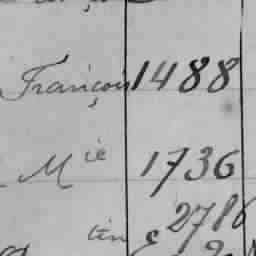 François 1488
Mie 1736
tin 2786